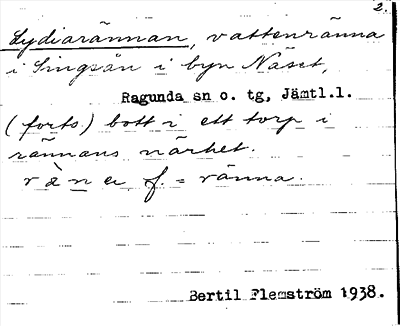 2.
Lydiarännan, vattenränna
i Singsån i byn Näset,
Ragunda sn o. tg, Jämtl.l.
(forts.) bott i ett torp i
rännans närhet.
rä̀na f. = ränna.
Bertil Flemström 1938.